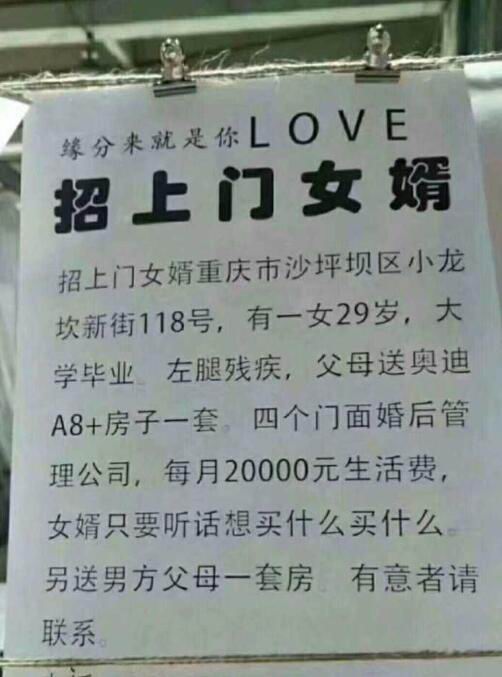 缘分来就是你LOVE
招上门女婿
招上门女婿重庆市沙坪坝区小龙
坎新街118号，有一女29岁，大
学毕业。左腿残疾，父母送奥迪
A8+房子一套。四个门面婚后管
理公司，每月20000元生活费，
女婿只要听话想买什么买什么。
另送男方父母一套房。有意者请
联系。